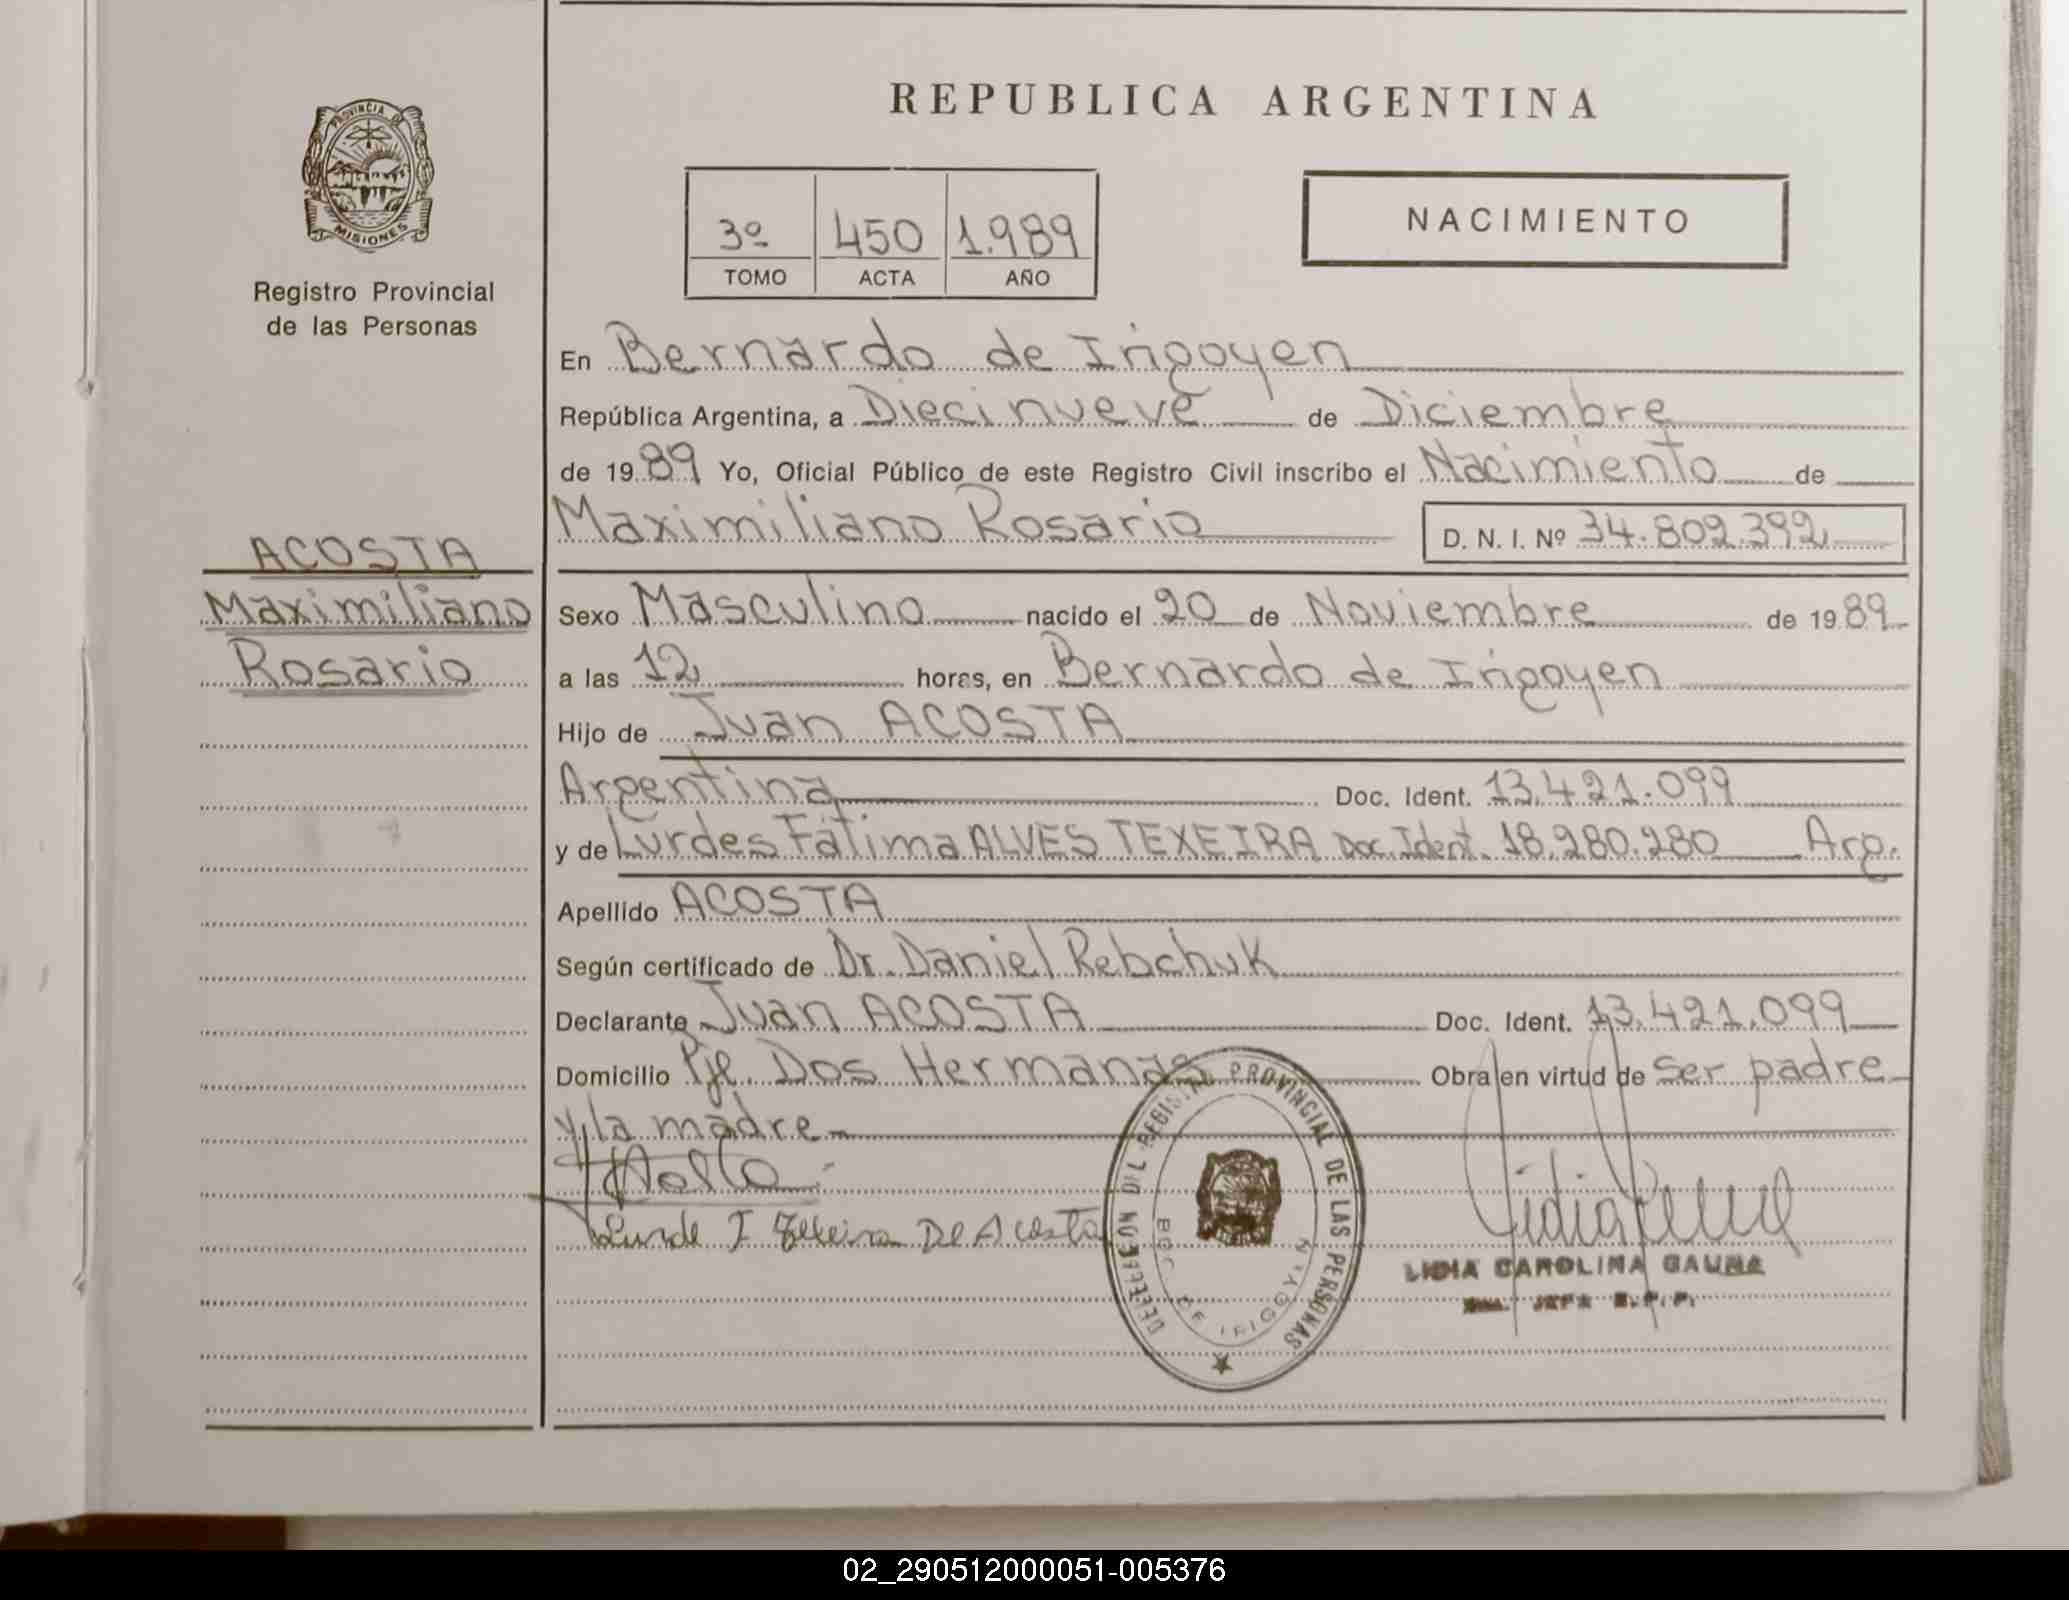 REPUBLICA ARGENTINA
PROVINCIA DE
MISIONES
Registro Provincial
de las Personas
3º 450 1.989
TOMO ACTA AÑO
NACIMIENTO
En Bernardo de Irigoyen
República Argentina, a Diecinueve de Diciembre
de 1989 Yo, Oficial Público de este Registro Civil inscribo el Nacimiento de
Maximiliano Rosario D. N. I. Nº 34.802.392
ACOSTA
Maximiliano
Rosario
Sexo Masculino nacido el 20 de Noviembre de 1989
a las 12 horas, en Bernardo de Irigoyen
Hijo de Juan ACOSTA
Argentina Doc. Ident. 13.421.099
y de Lurdes Fátima ALVES TEXEIRA Doc. Ident. 18.280.280 Arg.
Apellido ACOSTA
Según certificado de Dr. Daniel Rebchuk
Declarante Juan ACOSTA Doc. Ident. 13.421.099
Domicilio Pje. Dos Hermanas Obra en virtud de ser padre
y la madre
Lurde F Texeira De Acosta
REGISTRO PROVINCIAL DE LAS PERSONAS
BDO. DE IRIGOYEN
LIDIA CAROLINA GAUNA
02_290512000051-005376